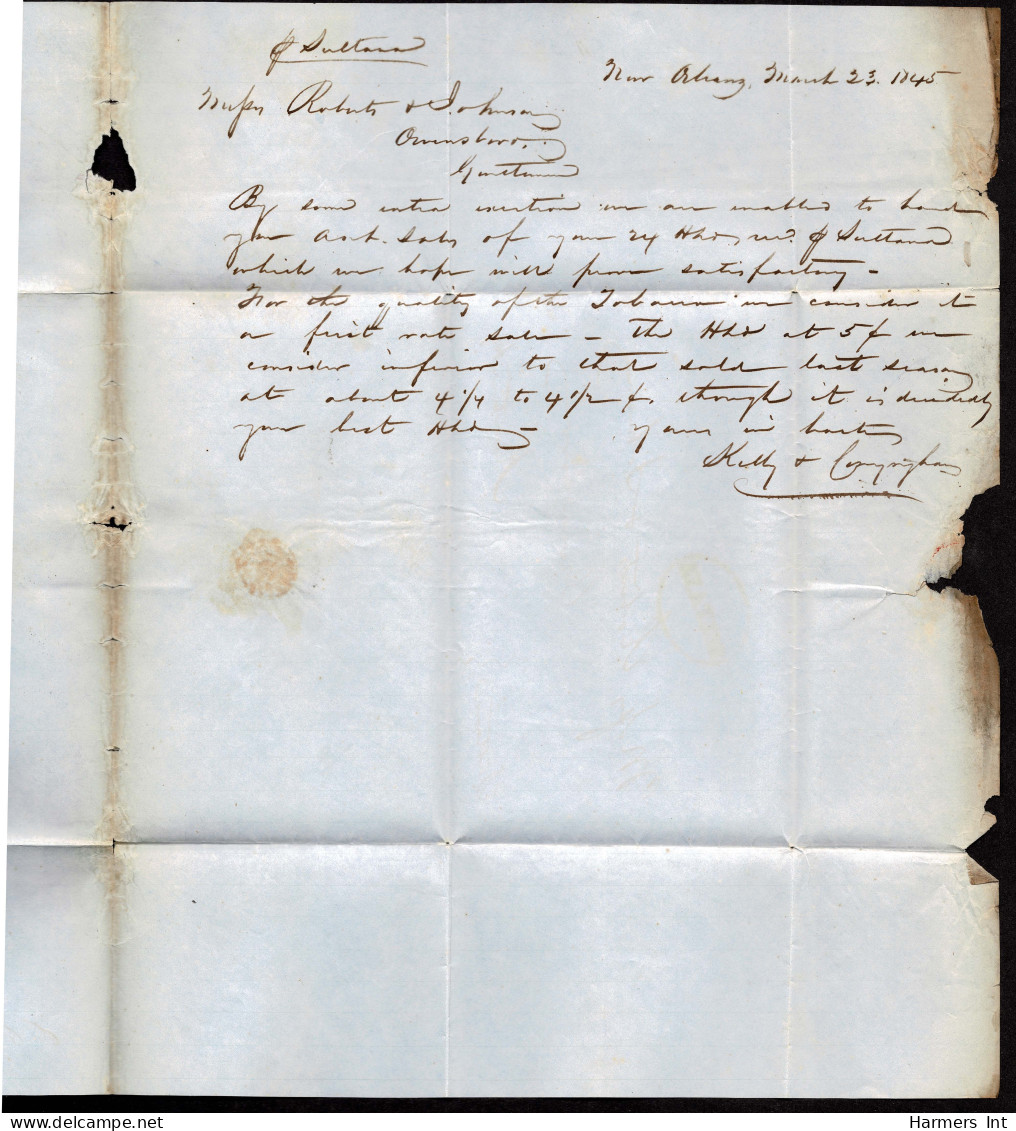 ⅌ Sultana
New Orleans, March 23. 1845
Messrs Roberts & Johnson
Owensboro,
Gentlemen
By some extra exertion we are enabled to hand
you acct. Sales of your 24 Hhds, recd. ⅌ Sultana
which we hope will prove satisfactory -
For the quality of the Tobacco we consider it
a first rate sale - the Hhd at 5¢ we
consider inferior to that sold last season
at about 4 1/4 to 4 1/2 ¢, though it is decidedly
your best Hhd - yours in haste
Kelly & Conyngham
Harmers Int
www.delcampe.net